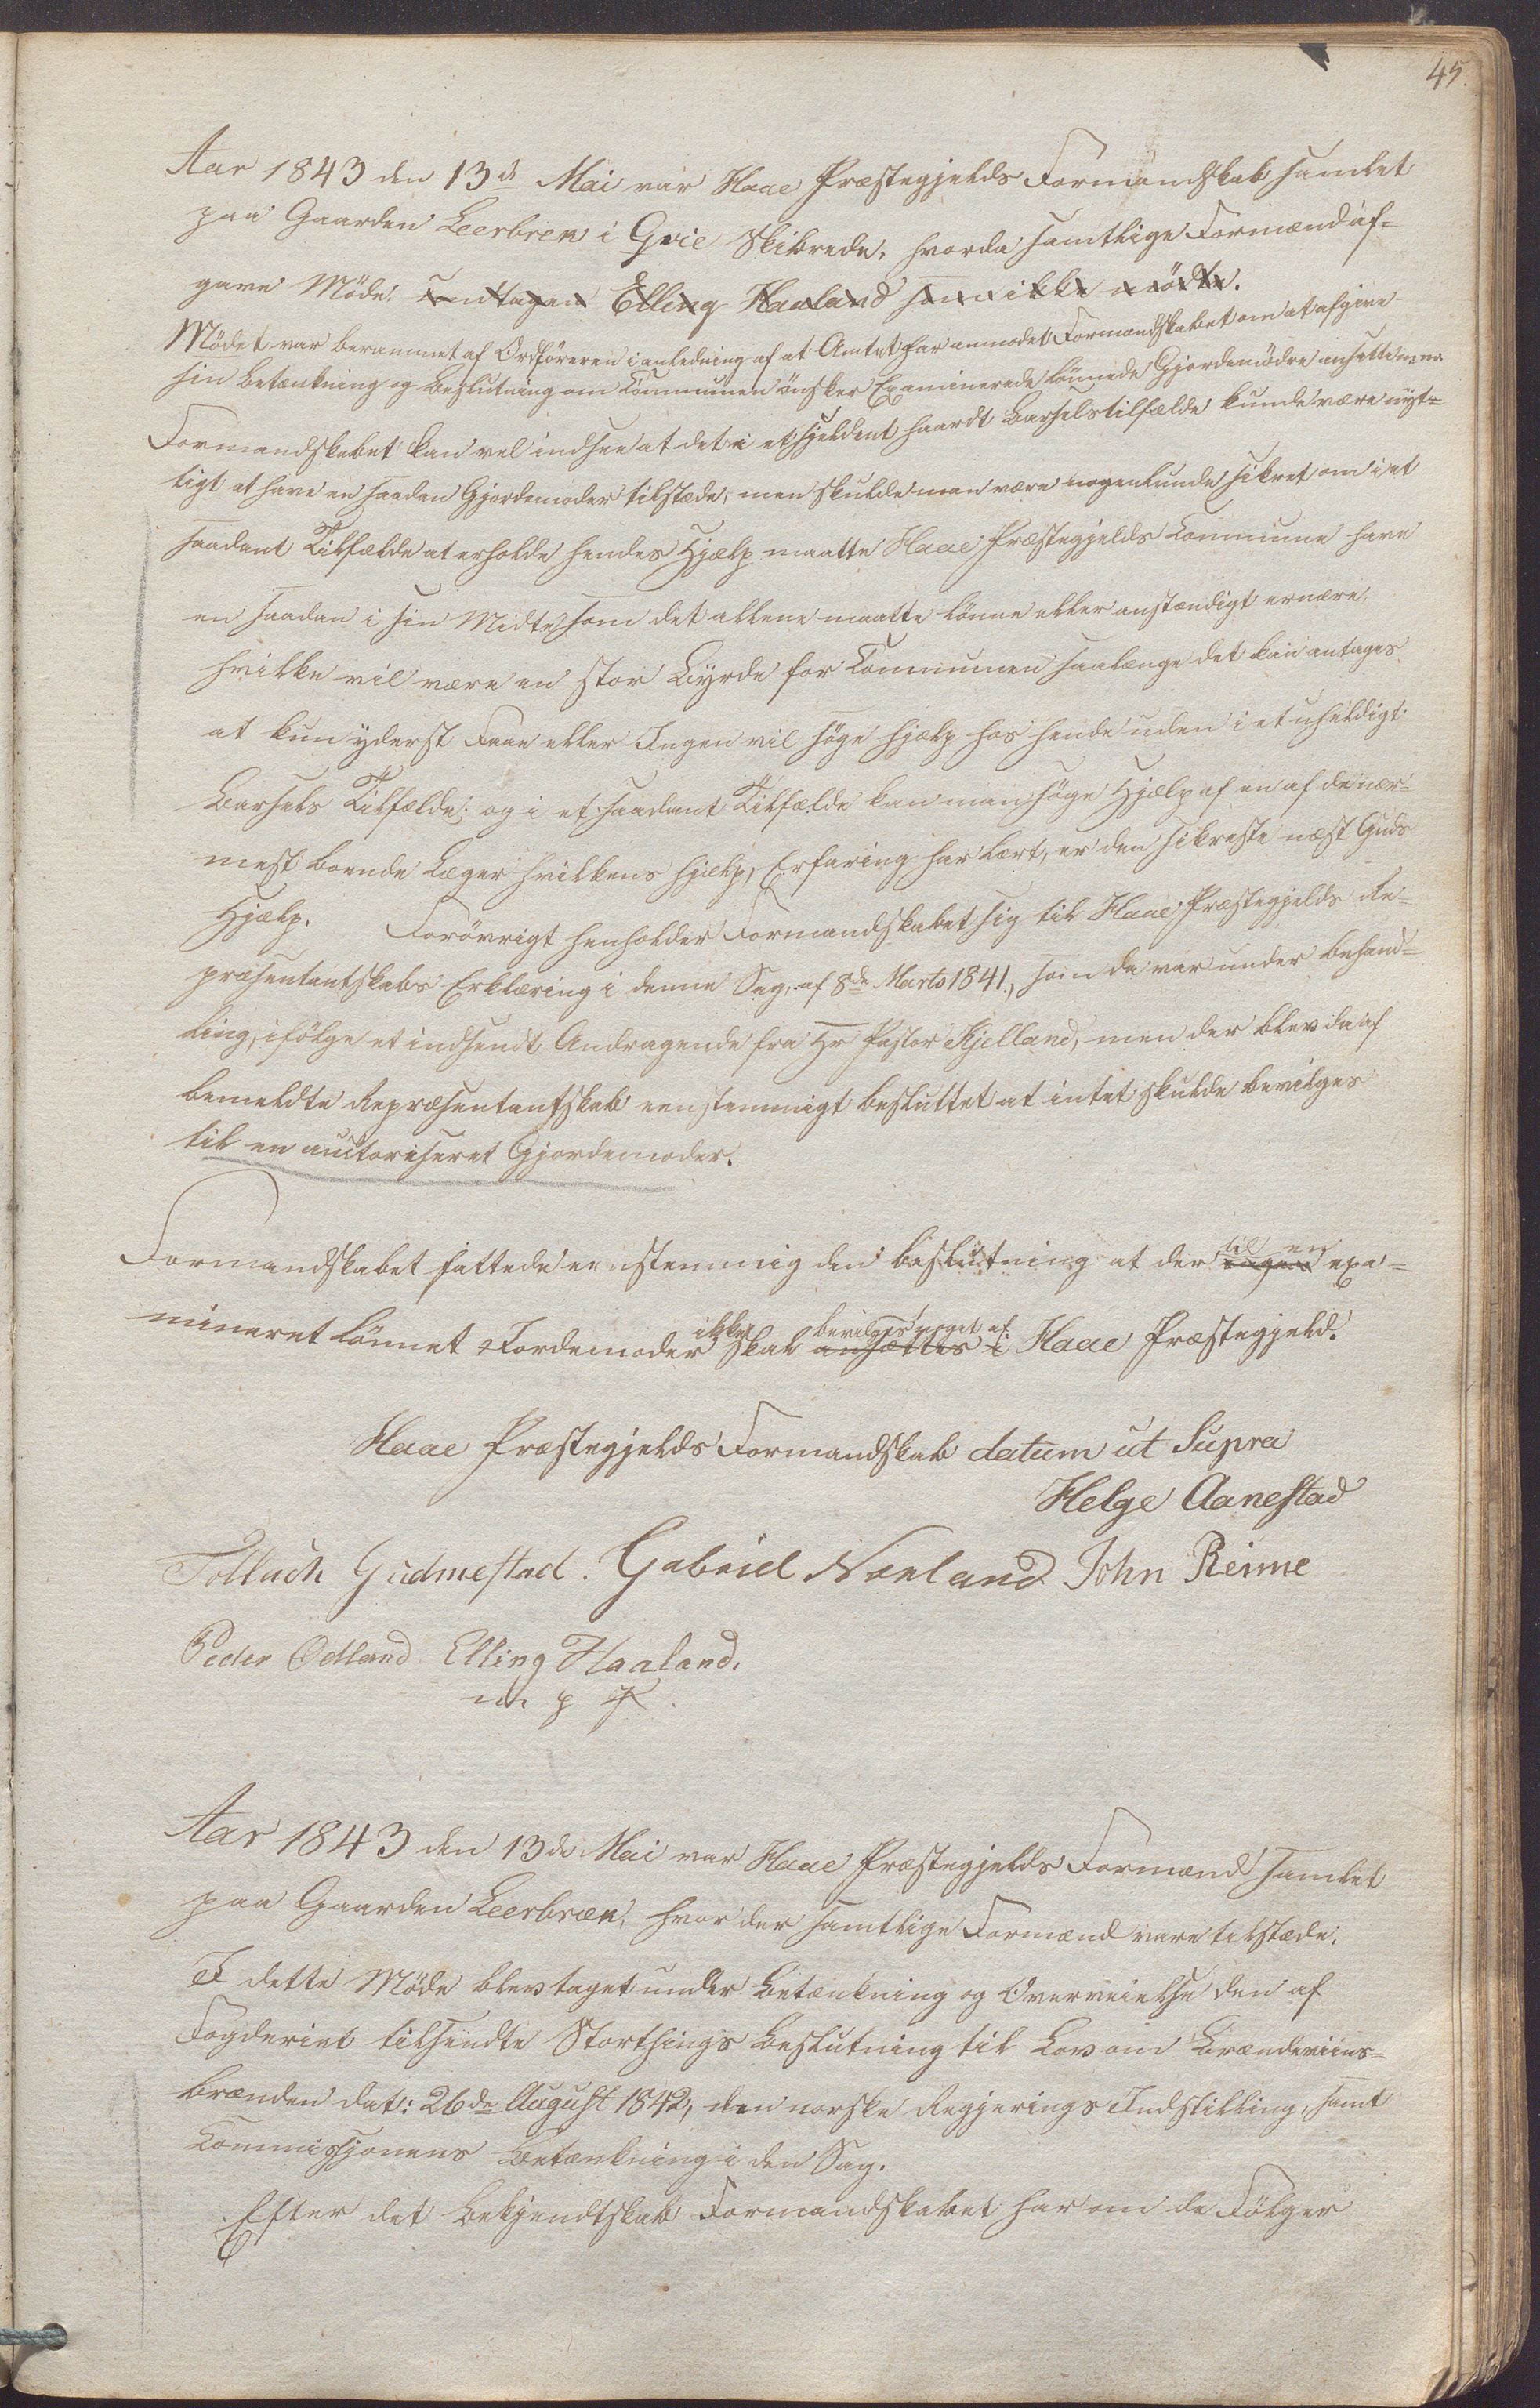 45.
Aar 1843 den 13de Mai var Haae Præstegjelds Formandskab samlet
paa Gaarden Leerbrek i Qvie Skibrede, hvorda samtlige Formænd af-
gave Møde. undtagen Elling Haaland som ikke mødte.
Mødet var berammet af Ordføreren i anledning af at Amtet har anmodet Formandskabet om at afgive
sin Betænkning og Beslutning om Communen ønsker Examinerede lønnede Gjordemødre ansatte
Formandskabet kan vel indsee at det i et sjeldent haardt Barselstilfælde kunde være nyt-
tigt at have en saadan Gjordemoder tilstæde, men skulde man være nogenlunde sikret om i et
saadant Tilfælde at erholde hendes Hjælp maatte Haae Præstegjelds Commune have
en saadan i sin Midte som det allene maatte lønne eller anstændigt ernære,
hvilke vil være en stor Byrde for Communen saalænge det kan antages
at kun yderst Faae eller Ingen vil søge Hjælp hos hende uden i et uheldigt
Barsels Tilfælde; og i et saadant Tilfælde kan man søge Hjælp af en af de nær-
mest boende Læger hvilkens Hjælp, Erfaring har lært, er den sikreste næst Guds
Hjælp. Forøvrigt henholder Formandskabet sig til Haae Præstegjelds Re-
præsentantskabs Erklæring i denne Sag, af 8de Marts 1841, som da var under Behand-
ling, ifølge et indsendt Andragende fra Hr Pastor Kjelland, men der blev da af
bemeldte Repræsentantskab eenstemmigt besluttet at intet skulde bevilges
til en auctoriseret Gjordemoder.
Formandskabet fattede eenstemmig den Beslutning at der ingen til en exa-
mineret lønnet Jordemoder ikke skal ansættes i bevilges noget af Haae Præstegjeld.
Haae Præstegjelds Formandskab datum ut Supra
Helge Aanestad
Tollach Gudmestad. Gabriel Nærland John Reime
Peder Ødland Elling Haaland.
m p P.
Aar 1843 den 13de Mai var Haae Præstegjelds Formænd samlet
paa Gaarden Leerbræk, hvor der samtlige Formænd vare tilstæde.
I dette Møde blev taget under Betænkning og Overveielse den af
Fogderiet tilsendte Storthings Beslutning til Lov om Brændeviins-
brænden dat: 26de August 1842, den norske Regjerings Indstilling, samt
Commissjonens Betænkning i den Sag.
Efter det Bekjendtskab Formandskabet har om de Følger